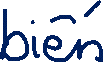 biến